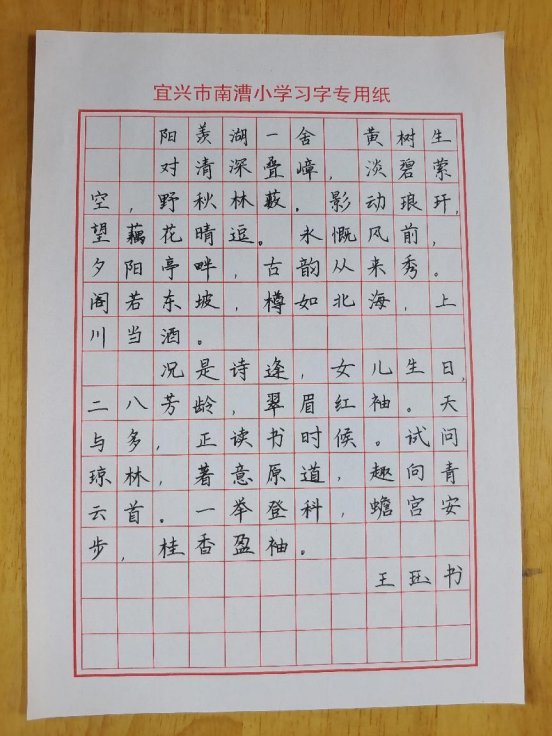 宜兴市南漕小学习字专用纸
阳羡湖一舍 黄树生
对清深叠嶂，淡碧萦
空，野秋林薮。影动琅玕，
望藕花晴逗。永慨风前，
夕阳亭畔，古韵从来秀。
阁若东坡，樽如北海，上
川当酒。
况是诗逢，女儿生日，
二八芳龄，翠眉红袖。天
与多，正读书时候。试问
琼林，著意原道，趣向青
云首。一举登科，蟾宫安
步，桂香盈袖。
王珏书